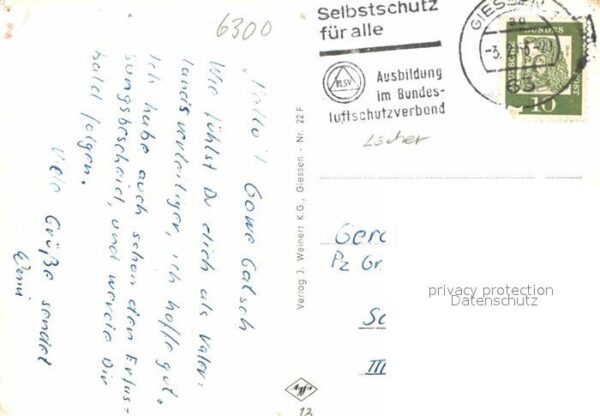 6300
Selbstschutz
für alle
Ausbildung
im Bundes-
luftschutzverband
BLSV
GIESSEN
-3.
63
DEUTSCHE BUNDESPOST
10
Hallo!
Wie fühlst Du dich als Vater-
landsverteidiger, ich hoffe gut.
Ich habe auch schon den Erfas-
sungsbescheid, und werde Dir
bald folgen.
Viele Grüße sendet
Verlag J. Weinert K.G., Giessen - Nr. 22 F
Gerd
Pz Gr
III
privacy protection
Datenschutz
12